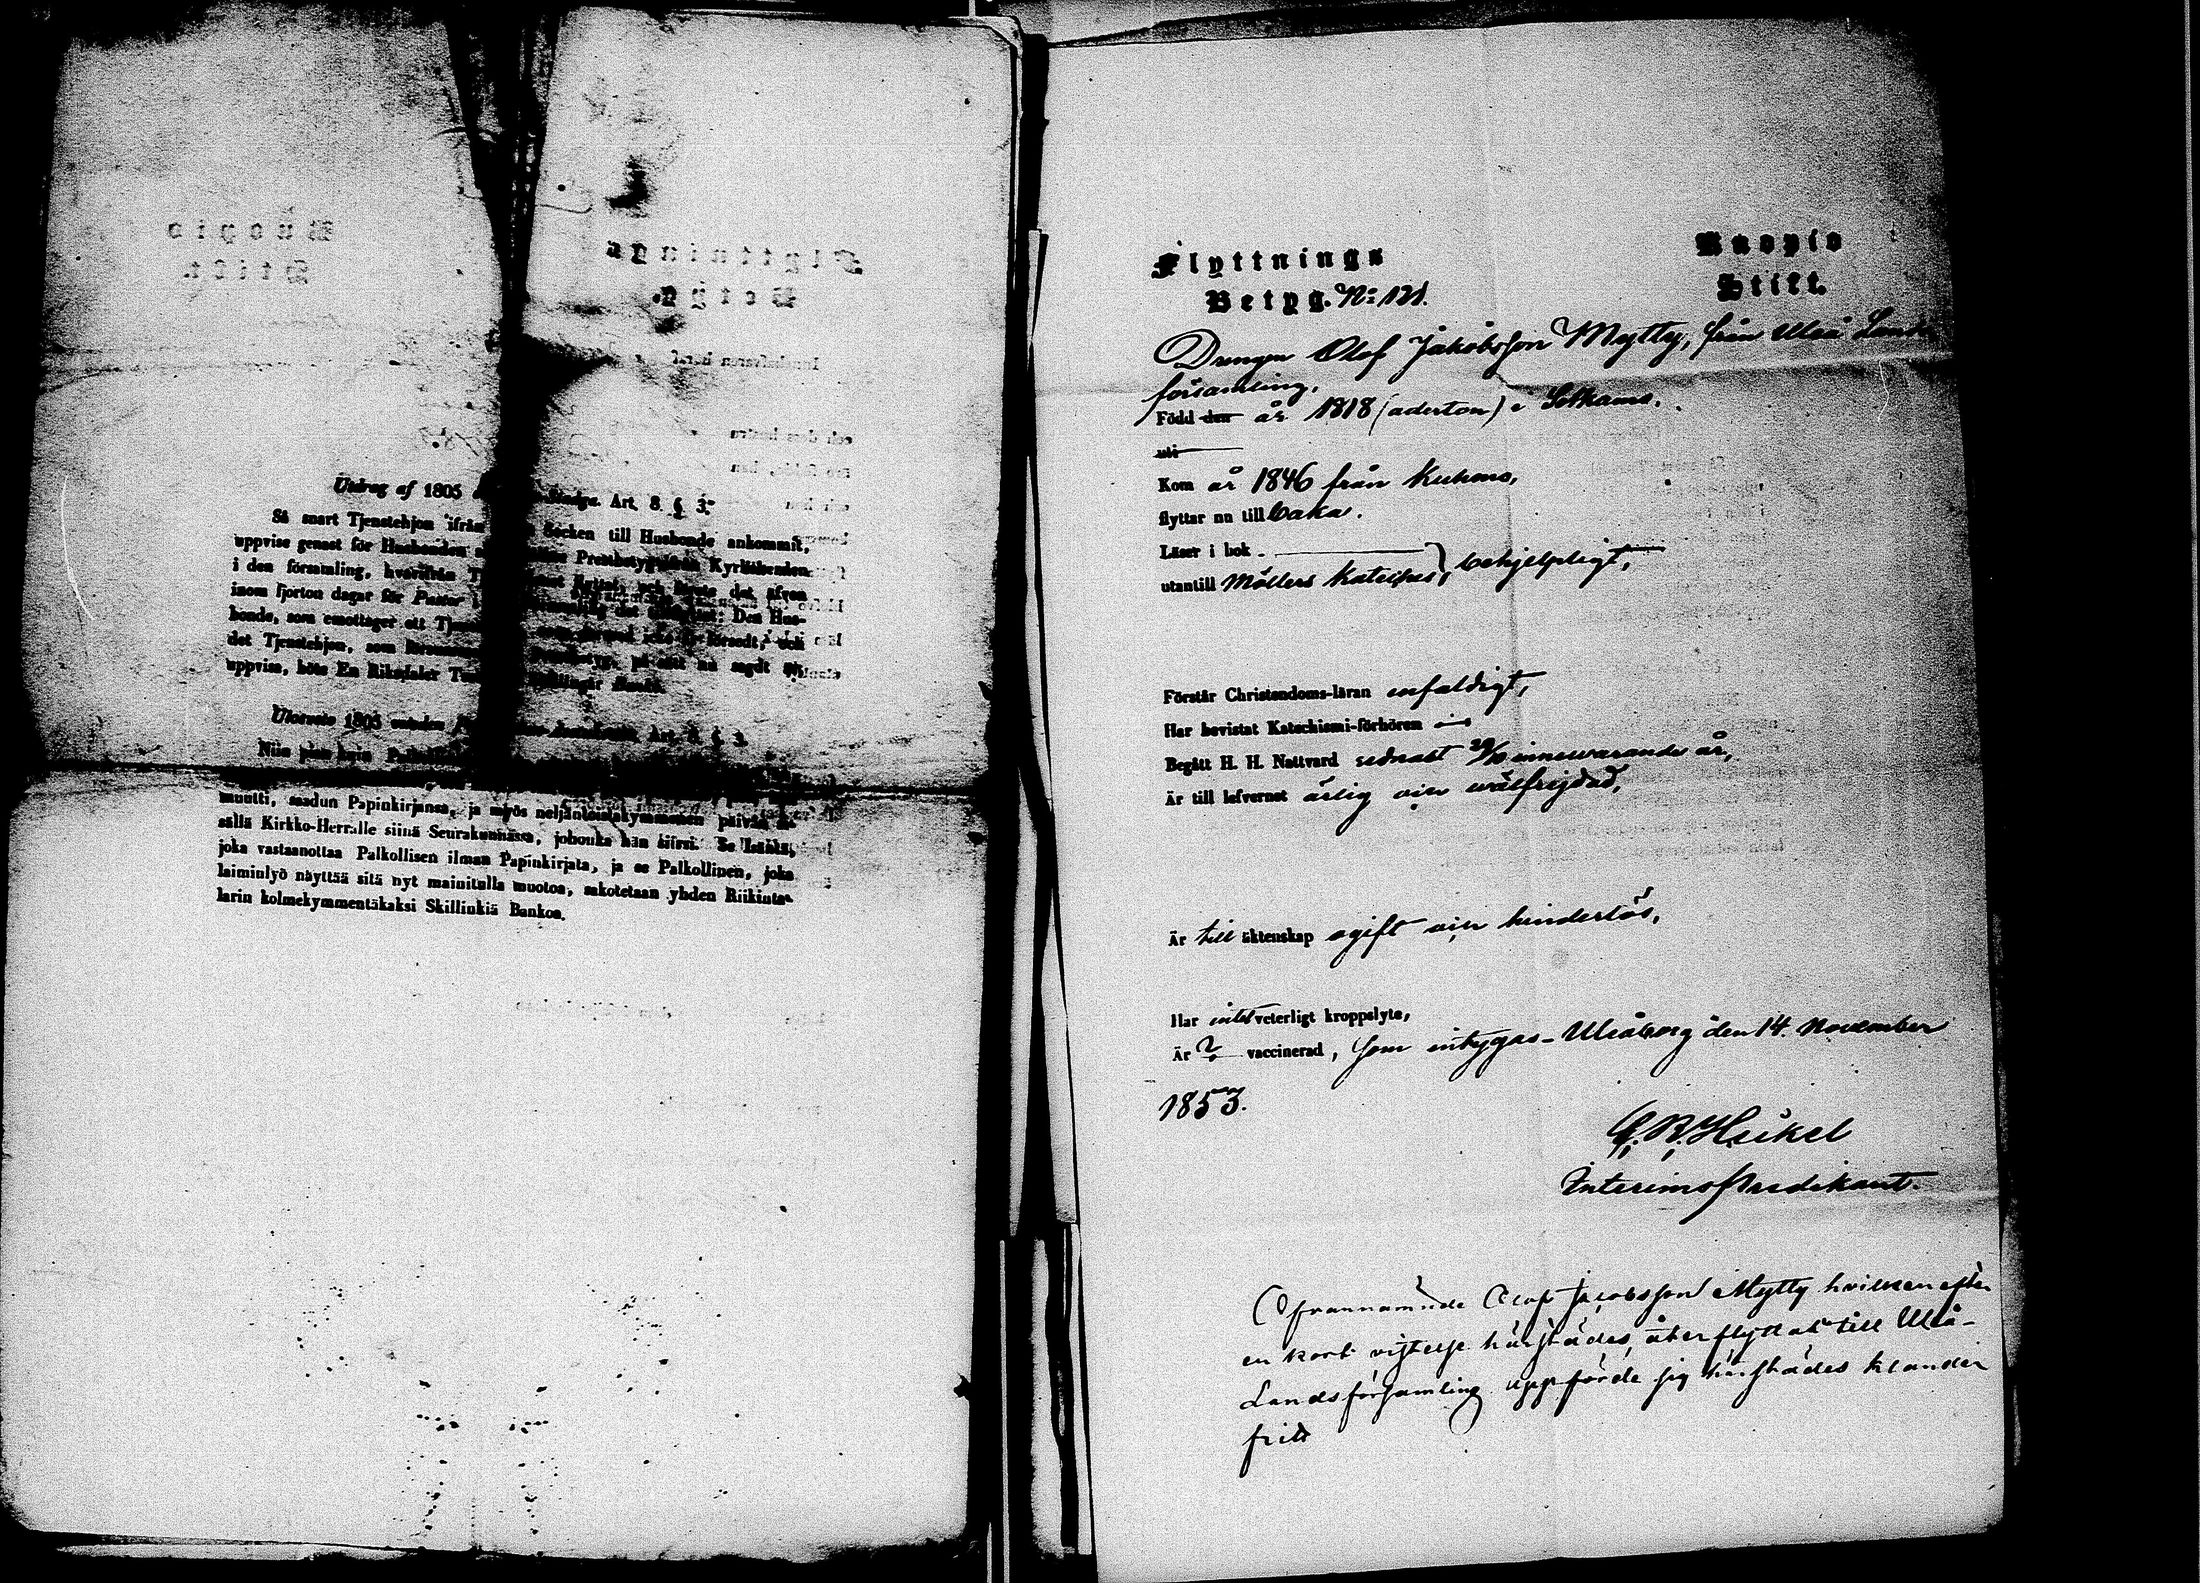 Utdrag af 1805 Stadga. Art. 8. § 3.
Så snart Tjenstehjon ifrån Socken till Husbonde ankommit,
uppvise genast för Husbonden Prestbetyg från Kyrkoherden
i den församling, hvarifrån flyttat, och det äfven
inom fjorton dagar för Pastor i det Den Hus-
bonde, som emottager ett Tjenstehjon icke försedt, och
det Tjenstehjon, som försummar på sätt nu sagdt
uppvisa, böte En Riksdaler Skillingar Banko.
Ulosveto 1805 vuoden Art. 8. § 3.
Niin pian kuin
muutti, saadun Papinkirjansa, ja myös neljäntoistakymmenen päivän si-
sällä Kirkko-Herralle siinä Seurakunnassa, johonka hän siirsi. Se Isäntä,
joka vastaanottaa Palkollisen ilman Papinkirjata, ja se Palkollinen, joka
laiminlyö näyttää sitä nyt mainitulla muotoa, sakotetaan yhden Riikinta-
larin kolmekymmentäkaksi Skillinkiä Bankoa.
Flyttnings
Betyg. No 121.
Kuopio
Stift.
Drengen Olof Jakobsson Mytty, från Uleå Lands
församling,
Född den år 1818 (aderton) i Sotkamo.
uti
Kom år 1846 från Kuhmo,
flyttar nu tillbaka.
Läser i bok
utantill Möllers Kateches, behjelpligt,
Förstår Christendoms-läran enfaldigt,
Har bevistat Katechismi-förhören
Begått H. H. Nattvard sednast innewarande år,
Är till lefvernet ärlig och wälfrejdad,
Är till äktenskap ogift och hinderlös,
Har intet veterligt kroppslyte,
Är ? vaccinerad, som intygas - Uleåborg den 14. November
1853.
C. R. Heikel
Interims Predikant.
Ofvannämnde Olof Jacobsson Mytty hvilken efter
en kort vistelse härstädes, återflyttat till Uleå-
Landsförsamling uppförde sig härstädes klander
fritt